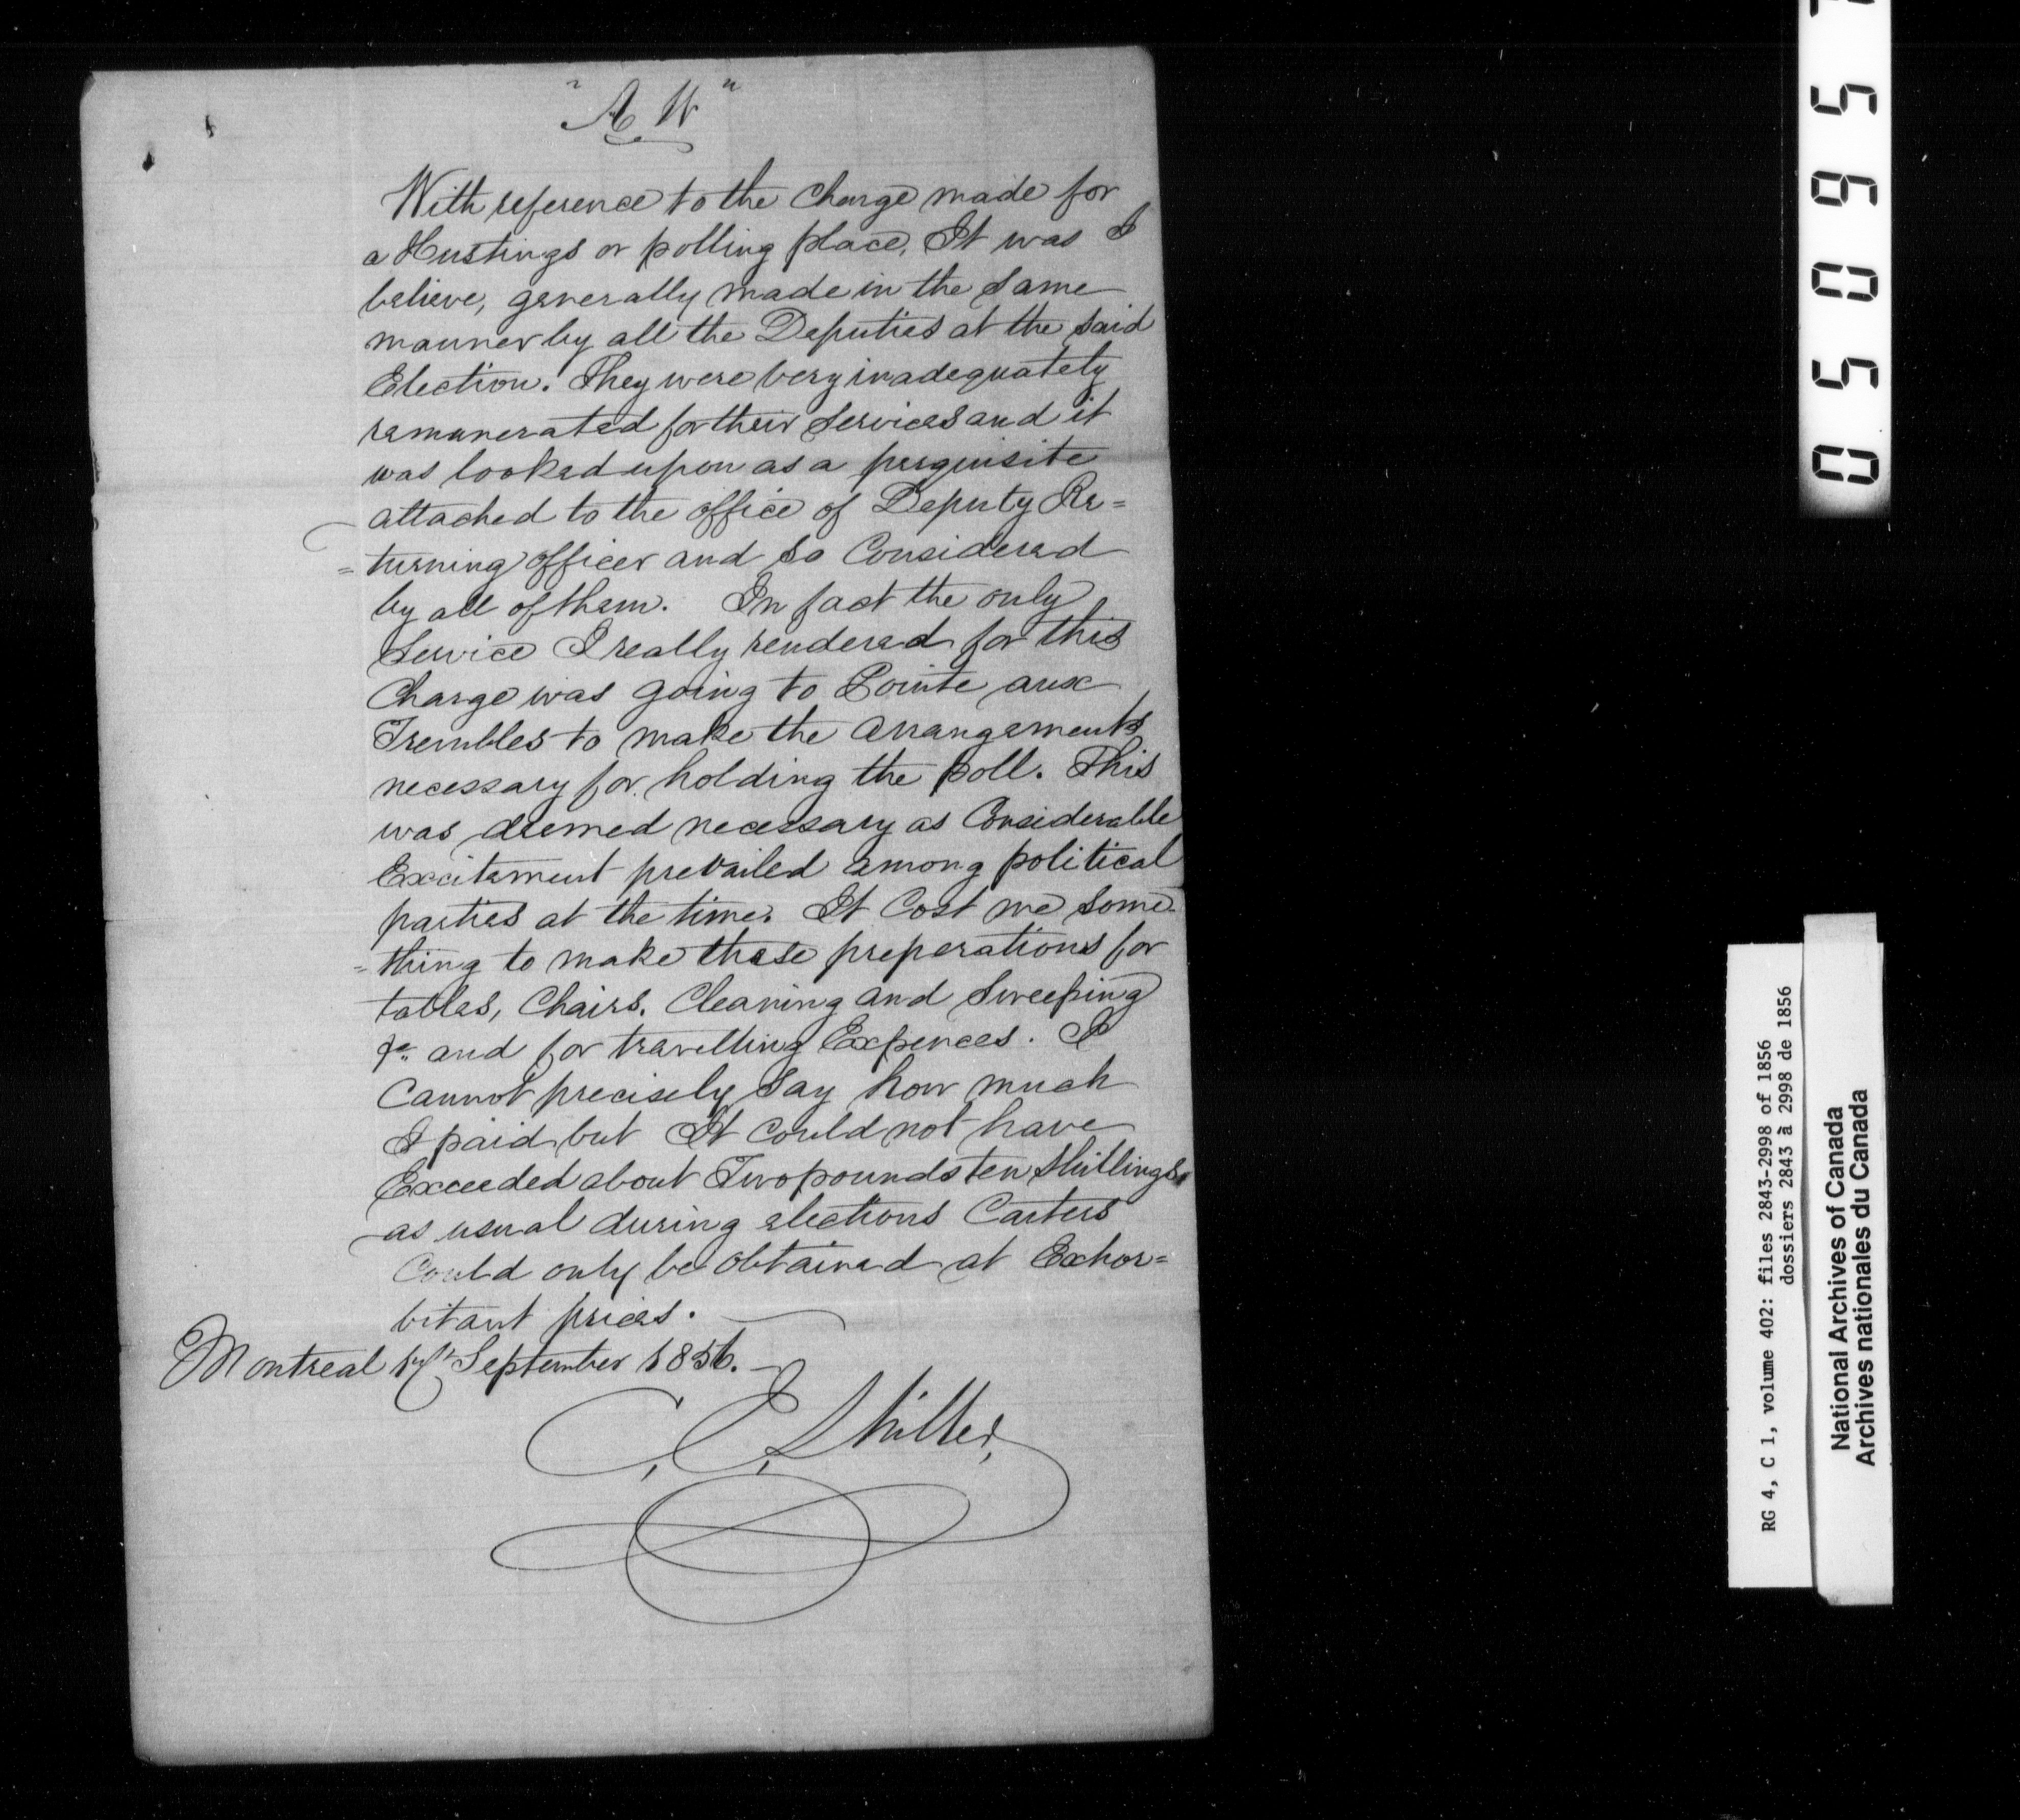 "A W"
With reference to the Charge made for
a Hustings or polling place, It was I
believe, generally made in the Same
manner by all the Deputies at the said
Election. They were very inadequately
remunerated for their Services and it
was looked upon as a perquisite
attached to the office of Deputy Re=
=turning officer and so Considered
by all of them. In fact the only
Service I really rendered for this
Charge was going to Pointe aux
Trembles to make the arrangements
necessary for holding the poll. This
was deemed necessary as Considerable
Excitement prevailed among political
parties at the time. It Cost me some
=thing to make these preperations for
tables, Chairs, Cleaning and Sweeping
&c. and for travelling Expences. I
Cannot precisely say how much
I paid but It could not have
Exceeded about Two pounds ten Shillings,
as usual during elections Carters
Could only be obtained at Exhor=
bitant prices.
Montreal September 1856.
C. E. Shiller,
05095
RG 4, C 1, volume 402: files 2843-2998 of 1856
dossiers 2843 à 2998 de 1856
National Archives of Canada
Archives nationales du Canada